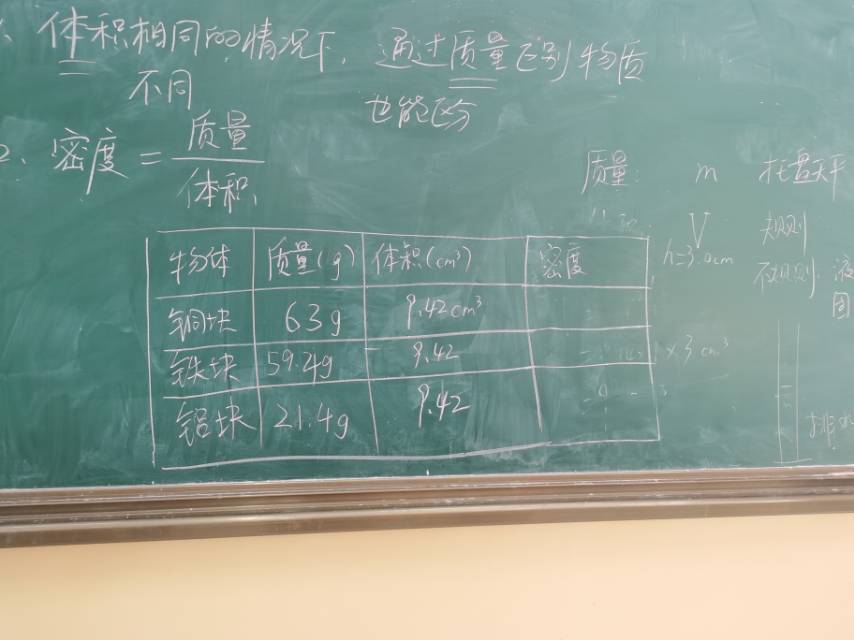 体积相同的情况下,通过质量区别物质
不同
也能区分
2、密度=质量/体积
质量: m 托盘天平
V 规则
h=3.0cm
不规则 液
固
物体 质量(g) 体积(cm³) 密度
铜块 63g 9.42cm³
铁块 59.4g 9.42
铝块 21.4g 9.42
×3 cm³
排水